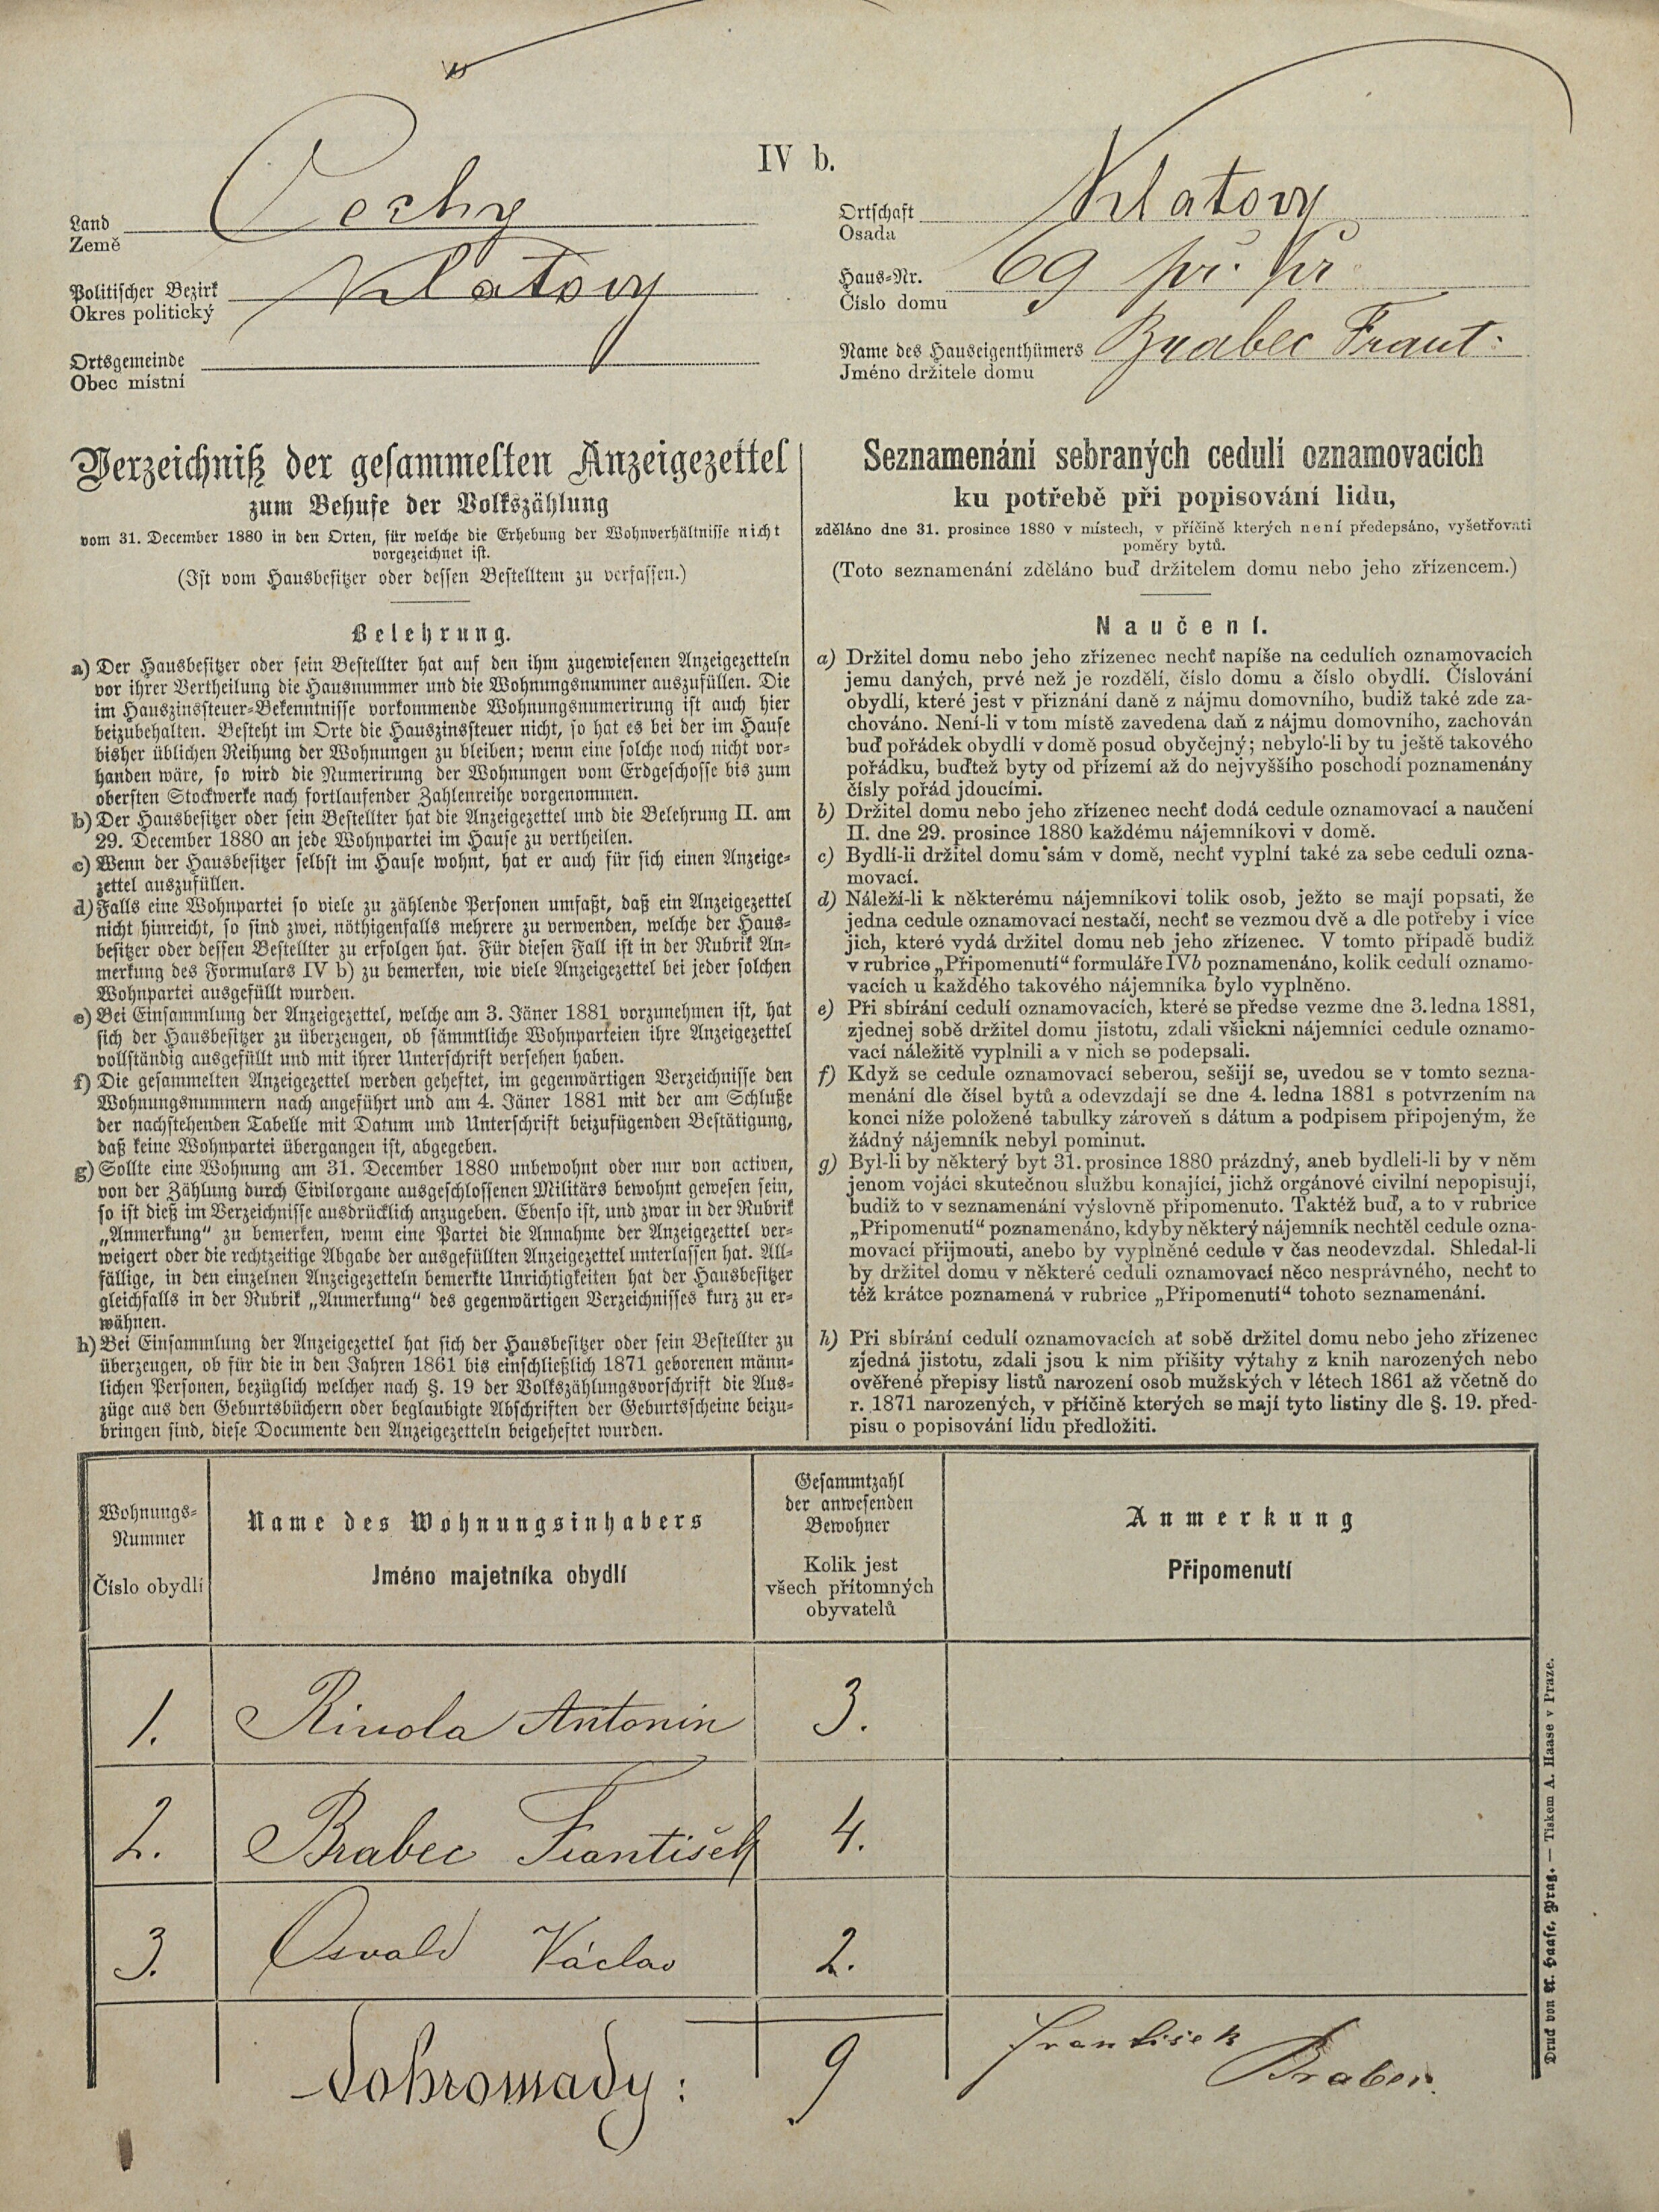 IV b.
Land Čechy
Země
Politischer Bezirk Klatovy
Okres politický
Ortsgemeinde
Obec místní
Ortschaft Klatovy
Osada
Haus-Nr. 69 př. pr
Číslo domu
Name des Hauseigenthümers Brabec Frant.
Jméno držitele domu
Verzeichniß der gesammelten Anzeigezettel
zum Behufe der Volkszählung
vom 31. December 1880 in den Orten, für welche die Erhebung der Wohnverhältnisse nicht
vorgezeichnet ist.
(Ist vom Hausbesitzer oder dessen Bestelltem zu verfassen.)
Belehrung.
a) Der Hausbesitzer oder sein Bestellter hat auf den ihm zugewiesenen Anzeigezetteln
vor ihrer Vertheilung die Hausnummer und die Wohnungsnummer auszufüllen. Die
im Hauszinssteuer-Bekenntnisse vorkommende Wohnungsnumerirung ist auch hier
beizubehalten. Besteht im Orte die Hauszinssteuer nicht, so hat es bei der im Hause
bisher üblichen Reihung der Wohnungen zu bleiben; wenn eine solche noch nicht vor-
handen wäre, so wird die Numerirung der Wohnungen vom Erdgeschosse bis zum
obersten Stockwerke nach fortlaufender Zahlenreihe vorgenommen.
b) Der Hausbesitzer oder sein Bestellter hat die Anzeigezettel und die Belehrung II. am
29. December 1880 an jede Wohnpartei im Hause zu vertheilen.
c) Wenn der Hausbesitzer selbst im Hause wohnt, hat er auch für sich einen Anzeige-
zettel auszufüllen.
d) Falls eine Wohnpartei so viele zu zählende Personen umfaßt, daß ein Anzeigezettel
nicht hinreicht, so sind zwei, nöthigenfalls mehrere zu verwenden, welche der Haus-
besitzer oder dessen Bestellter zu erfolgen hat. Für diesen Fall ist in der Rubrik An-
merkung des Formulars IV b) zu bemerken, wie viele Anzeigezettel bei jeder solchen
Wohnpartei ausgefüllt wurden.
e) Bei Einsammlung der Anzeigezettel, welche am 3. Jäner 1881 vorzunehmen ist, hat
sich der Hausbesitzer zu überzeugen, ob sämmtliche Wohnparteien ihre Anzeigezettel
vollständig ausgefüllt und mit ihrer Unterschrift versehen haben.
f) Die gesammelten Anzeigezettel werden geheftet, im gegenwärtigen Verzeichnisse den
Wohnungsnummern nach angeführt und am 4. Jäner 1881 mit der am Schluße
der nachstehenden Tabelle mit Datum und Unterschrift beizufügenden Bestätigung,
daß keine Wohnpartei übergangen ist, abgegeben.
g) Sollte eine Wohnung am 31. December 1880 unbewohnt oder nur von activen,
von der Zählung durch Civilorgane ausgeschlossenen Militärs bewohnt gewesen sein,
so ist dieß im Verzeichnisse ausdrücklich anzugeben. Ebenso ist, und zwar in der Rubrik
„Anmerkung“ zu bemerken, wenn eine Partei die Annahme der Anzeigezettel ver-
weigert oder die rechtzeitige Abgabe der ausgefüllten Anzeigezettel unterlassen hat. All-
fällige, in den einzelnen Anzeigezetteln bemerkte Unrichtigkeiten hat der Hausbesitzer
gleichfalls in der Rubrik „Anmerkung“ des gegenwärtigen Verzeichnisses kurz zu er-
wähnen.
h) Bei Einsammlung der Anzeigezettel hat sich der Hausbesitzer oder sein Bestellter zu
überzeugen, ob für die in den Jahren 1861 bis einschließlich 1871 geborenen männ-
lichen Personen, bezüglich welcher nach §. 19 der Volkszählungsvorschrift die Aus-
züge aus den Geburtsbüchern oder beglaubigte Abschriften der Geburtsscheine beizu-
bringen sind, diese Documente den Anzeigezetteln beigeheftet wurden.
Seznamenání sebraných cedulí oznamovacích
ku potřebě při popisování lidu,
zděláno dne 31. prosince 1880 v místech, v příčině kterých není předepsáno, vyšetřovati
poměry bytů.
(Toto seznamenání zděláno buď držitelem domu nebo jeho zřízencem.)
Naučení.
a) Držitel domu nebo jeho zřízenec nechť napíše na cedulích oznamovacích
jemu daných, prvé než je rozdělí, číslo domu a číslo obydlí. Číslování
obydlí, které jest v přiznání daně z nájmu domovního, budiž také zde za-
chováno. Není-li v tom místě zavedena daň z nájmu domovního, zachován
buď pořádek obydlí v domě posud obyčejný; nebylo-li by tu ještě takového
pořádku, buďtež byty od přízemí až do nejvyššího poschodí poznamenány
čísly pořád jdoucími.
b) Držitel domu nebo jeho zřízenec nechť dodá cedule oznamovací a naučení
II. dne 29. prosince 1880 každému nájemníkovi v domě.
c) Bydlí-li držitel domu sám v domě, nechť vyplní také za sebe ceduli ozna-
movací.
d) Náleží-li k některému nájemníkovi tolik osob, ježto se mají popsati, že
jedna cedule oznamovací nestačí, nechť se vezmou dvě a dle potřeby i více
jich, které vydá držitel domu neb jeho zřízenec. V tomto případě budiž
v rubrice „Připomenutí“ formuláře IVb poznamenáno, kolik cedulí oznamo-
vacích u každého takového nájemníka bylo vyplněno.
e) Při sbírání cedulí oznamovacích, které se předse vezme dne 3. ledna 1881,
zjednej sobě držitel domu jistotu, zdali všickni nájemníci cedule oznamo-
vací náležitě vyplnili a v nich se podepsali.
f) Když se cedule oznamovací seberou, sešijí se, uvedou se v tomto sezna-
menání dle čísel bytů a odevzdají se dne 4. ledna 1881 s potvrzením na
konci níže položené tabulky zároveň s dátum a podpisem připojeným, že
žádný nájemník nebyl pominut.
g) Byl-li by některý byt 31. prosince 1880 prázdný, aneb bydleli-li by v něm
jenom vojáci skutečnou službu konající, jichž orgánové civilní nepopisují,
budiž to v seznamenání výslovně připomenuto. Taktéž buď, a to v rubrice
„Připomenutí“ poznamenáno, kdyby některý nájemník nechtěl cedule ozna-
movací přijmouti, anebo by vyplněné cedule v čas neodevzdal. Shledal-li
by držitel domu v některé ceduli oznamovací něco nesprávného, nechť to
též krátce poznamená v rubrice „Připomenutí“ tohoto seznamenání.
h) Při sbírání cedulí oznamovacích ať sobě držitel domu nebo jeho zřízenec
zjedná jistotu, zdali jsou k nim přišity výtahy z knih narozených nebo
ověřené přepisy listů narození osob mužských v létech 1861 až včetně do
r. 1871 narozených, v příčině kterých se mají tyto listiny dle §. 19. před-
pisu o popisování lidu předložiti.
Wohnungs-
Nummer
Číslo obydlí
Name des Wohnungsinhabers
Jméno majetníka obydlí
Gesammtzahl
der anwesenden
Bewohner
Kolik jest
všech přítomných
obyvatelů
Anmerkung
Připomenutí
1. Rivola Antonín 3.
2. Brabec František 4.
3. Osvald Václav 2.
Dohromady: 9
František
Brabec.
Druck von A. Haase, Prag. — Tiskem A. Haase v Praze.